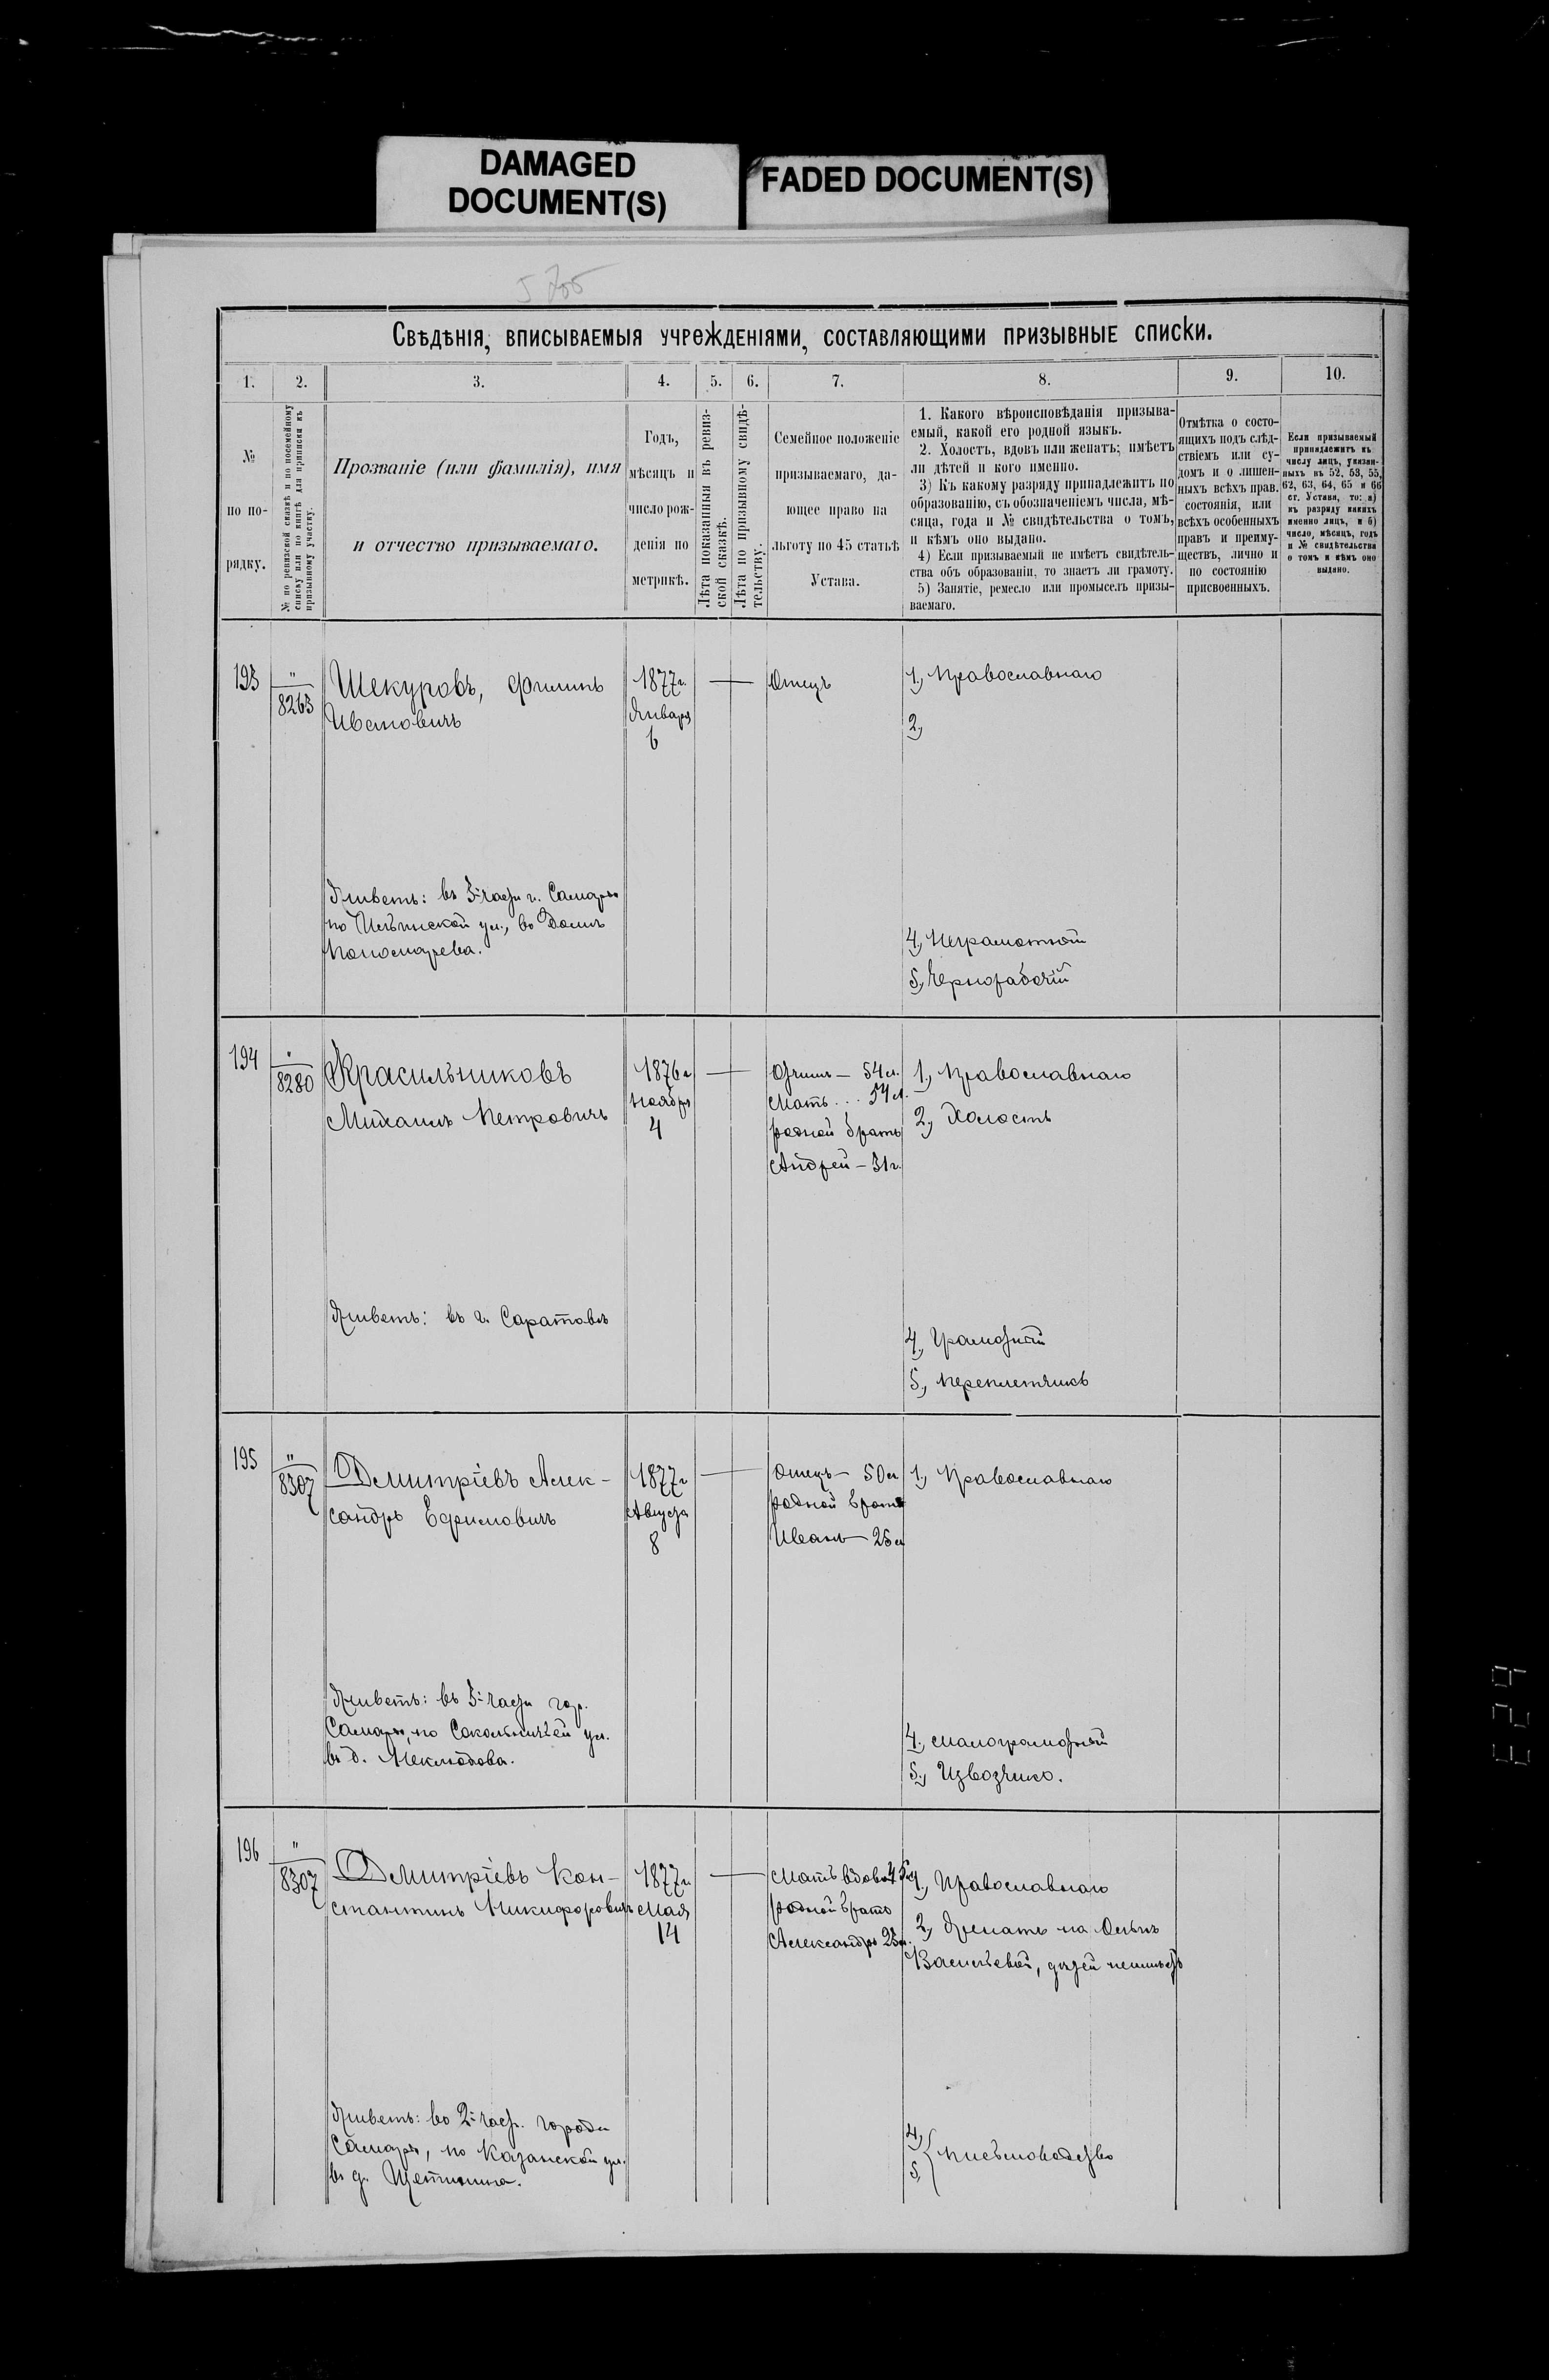 DAMAGED
DOCUMENT(S)
FADED DOCUMENT(S)
Свѣдѣнія, вписываемыя учрежденіями, составляющими призывные списки.
1. 2. 3. 4. 5. 6. 7. 8. 9. 10.
№
по по-
рядку.
№ по ревизской сказкѣ и по посемейному
списку или по книгѣ для приписки къ
призывному участку.
Прозваніе (или фамилія), имя
и отчество призываемаго.
Годъ,
мѣсяцъ и
число рож-
денія по
метрикѣ.
Лѣта показанныя въ ревиз-
ской сказкѣ.
Лѣта по призывному свидѣ-
тельству.
Семейное положеніе
призываемаго, да-
ющее право на
льготу по 45 статьѣ
Устава.
1. Какого вѣроисповѣданія призыва-
емый, какой его родной языкъ.
2. Холостъ, вдовъ или женатъ; имѣетъ
ли дѣтей и кого именно.
3) Къ какому разряду принадлежитъ по
образованію, съ обозначеніемъ числа, мѣ-
сяца, года и № свидѣтельства о томъ,
и кѣмъ оно выдано.
4) Если призываемый не имѣетъ свидѣтель-
ства объ образованіи, то знаетъ ли грамоту.
5) Занятіе, ремесло или промыселъ призы-
ваемаго.
Отмѣтка о состо-
ящихъ подъ слѣд-
ствіемъ или су-
домъ и о лишен-
ныхъ всѣхъ прав.
состоянія, или
всѣхъ особенныхъ
правъ и преиму-
ществъ, лично и
по состоянію
присвоенныхъ.
Если призываемый
принадлежитъ къ
числу лицъ, указан-
ныхъ въ 52, 53, 55,
62, 63, 64, 65 и 66
ст. Устава, то: а)
къ разряду какихъ
именно лицъ, и б)
число, мѣсяцъ, годъ
и № свидѣтельства
о томъ и кѣмъ оно
выдано.
193
"
8263
Шекуровъ, Филипъ
Ивановичъ
1877г.
Января
6
Отецъ
1, Православнаго
2,
Живетъ: въ 3й части г. Самары
по Ильинской ул., въ домѣ
Пономарева.
4, Неграмотный
5, Чернорабочій
194
"
8280
Красильниковъ
Михаилъ Петровичъ
1876г
Ноября
4
Отчимъ — 54 л.
Мать... 54 л.
родной братъ
Андрей — 31г.
1, Православнаго
2, Холостъ
Живетъ: въ г. Саратовѣ
4, Грамотный
5, Переплетчикъ
195
"
8307
Дмитріевъ Алек-
сандръ Ефимовичъ
1877г
Августа
8
Отецъ — 50 л
родной братъ
Иванъ — 25 л
1, Православнаго
Живетъ: въ 3й части гор.
Самары, по Сокольничьей ул.
въ д.
4, Малограмотный
5, Извозчикъ.
196
"
8307
Дмитріевъ Кон-
стантинъ Никифоровичъ
1877г
Мая
14
Мать вдова
родной братъ
Александръ
1, Православнаго
2, Женатъ на
Васильевой, дѣтей неимѣетъ
Живетъ: во 2й част. города
Самары, по Казанской ул.
въ д. Щетинина.
4,
5, Письмоводство
E29